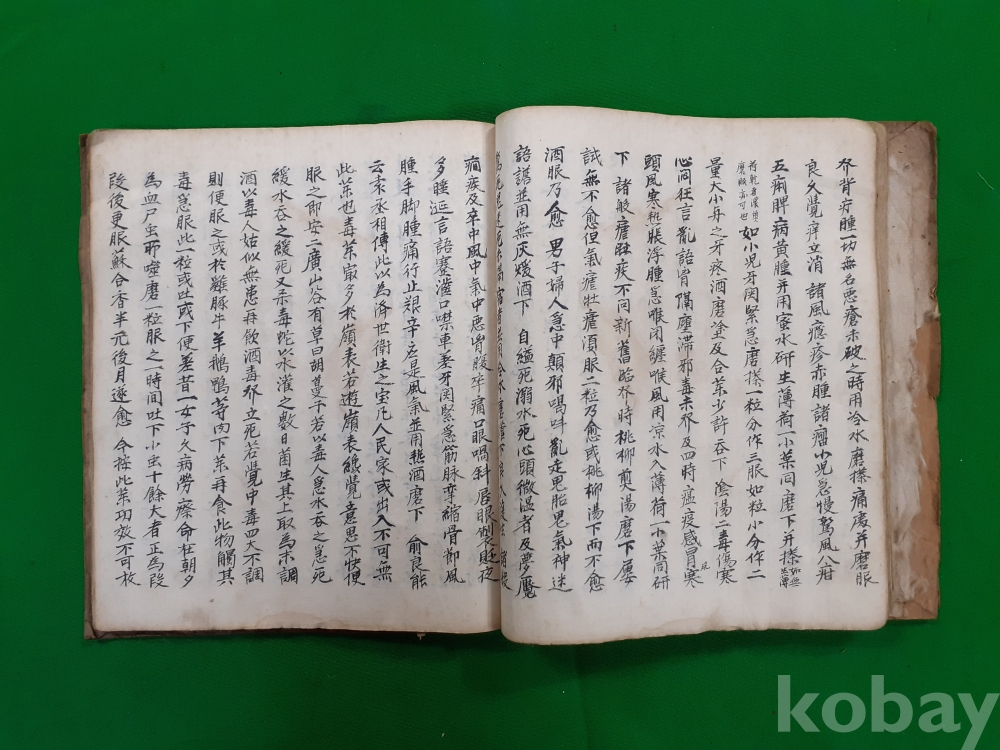 癶背疔腫一切無名惡瘡未破之時用冷水磨搽痛處并磨服
良久覺痒立消 諸風癮疹赤腫諸瘤小児急慢驚風八疳
五痢脾病黃腫并用蜜水研生薄荷一小葉同磨下并搽
如小児牙関緊急磨搽一粒分作三服如粒小分作二
量大小与之牙疼酒磨塗及合茶少許吞下 陰湯二毒傷寒
心悶狂言亂語胷膈壅滯邪毒未癶及四時瘟疫感冒寒
頭風寒热脹浮腫急喉闭纏喉風用凉水入薄荷一小葉同研
下 諸般瘧疾不同新舊臨癶時桃柳剪湯磨下屢
試無不愈但氣瘧牡瘧湏服二粒乃愈或桃柳湯下而不愈
酒服乃愈 男子婦人急中顛邪喝呌亂走鬼胎鬼氣神迷
語譫並用無灰煖酒下 自縊死溺水死心頭微温者及夢魘
癎疾及卒中風中氣中惡胷腹卒痛口眼喎斜唇眼倒夜
多睡涎言語蹇澁口噤車牙関緊急筋脉攣縮骨節風
腫手脚腫痛行止艱辛應是風氣並用热酒磨下 俞良能
云袁丞相傳此以為済世衛生之宝凡人民家或出入不可無
此茶也毒茶宲多於嶺表若遊嶺表纔覺意思不快便
服之即安二廣山谷有草曰胡蔓子若以毒人急水吞之急死
緩水吞之緩死又杀毒蛇以水灌之數日菌生其上取為末調
酒以毒人始似無患再飲酒毒癶立死若覺中毒四大不調
則便服之或於雞豚牛羊鵝鴨等肉下茶再食此物觸其
毒急服此一粒或吐或下便差昔一女子久病勞瘵命在朝夕
為血尸虫所噬磨一粒服之一時間吐下小虫十餘大者正為叚
叚後更服蘇合香半元後月遂愈 今按此茶功效不可枚
kobay